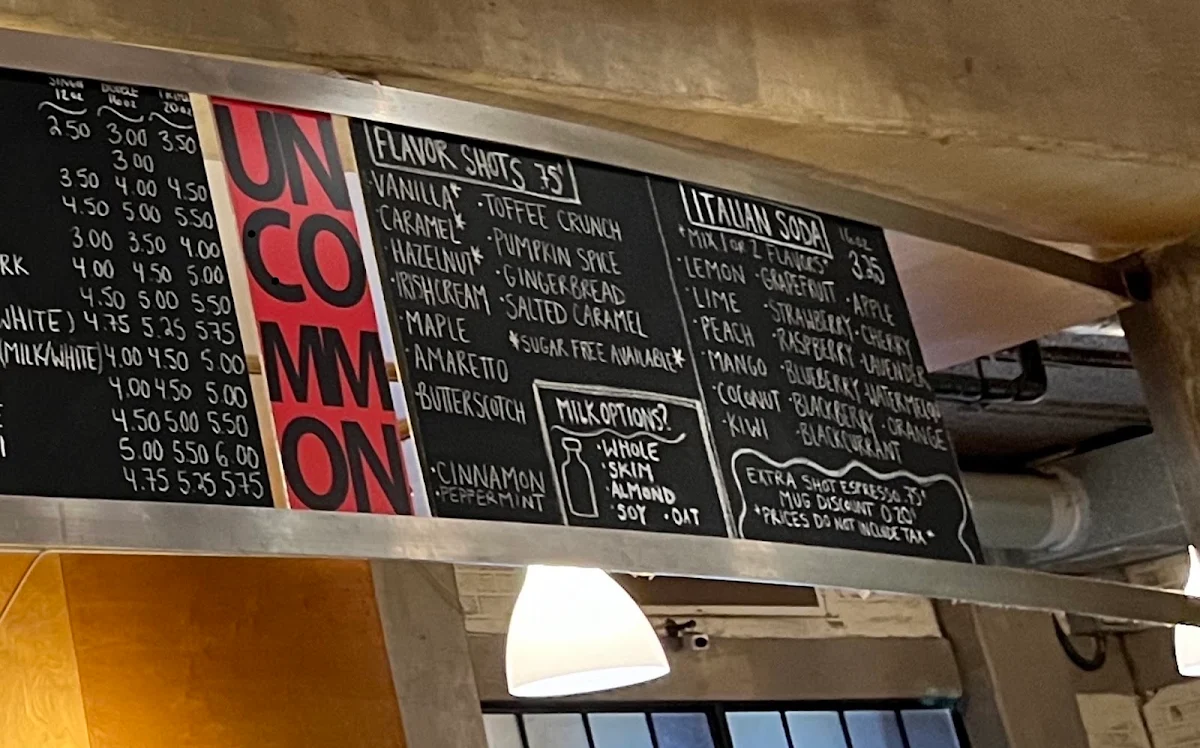 SINGLE DOUBLE TRIPLE
12oz 16oz 20oz
2.50 3.00 3.50
3.00
3.50 4.00 4.50
4.50 5.00 5.50
3.00 3.50 4.00
RK 4.00 4.50 5.00
4.50 5.00 5.50
WHITE) 4.75 5.25 5.75
(MILK/WHITE) 4.00 4.50 5.00
4.00 4.50 5.00
4.50 5.00 5.50
5.00 5.50 6.00
4.75 5.25 5.75
UN
CO
MM
ON
FLAVOR SHOTS .75¢
·VANILLA*
·CARAMEL*
·HAZELNUT*
·IRISH CREAM
·MAPLE
·AMARETTO
·BUTTERSCOTCH
·CINNAMON
·PEPPERMINT
·TOFFEE CRUNCH
·PUMPKIN SPICE
·GINGERBREAD
·SALTED CARAMEL
*SUGAR FREE AVAILABLE*
MILK OPTIONS?
·WHOLE
·SKIM
·ALMOND
·SOY ·OAT
ITALIAN SODA 16oz
*MIX 1 or 2 FLAVORS* 3.35
·LEMON ·GRAPEFRUIT ·APPLE
·LIME ·STRAWBERRY ·CHERRY
·PEACH ·RASPBERRY ·LAVENDER
·MANGO ·BLUEBERRY ·WATERMELON
·COCONUT ·BLACKBERRY ·ORANGE
·KIWI ·BLACKCURRANT
EXTRA SHOT ESPRESSO .75¢
MUG DISCOUNT 0.20¢
*PRICES DO NOT INCLUDE TAX*